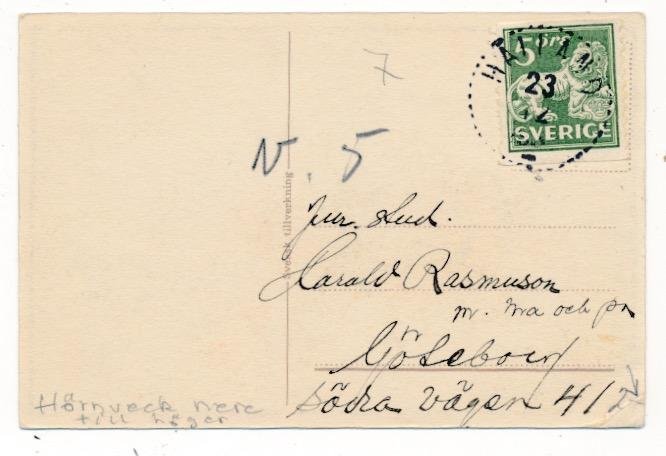 5 öre
HALLAND
23
12
SVERIGE
7
N. 5
Svensk tillverkning
Jur. stud.
Harald Rasmuson
m. fru och
Göteborg
Södra vägen 41
Hörnveck nere
till höger